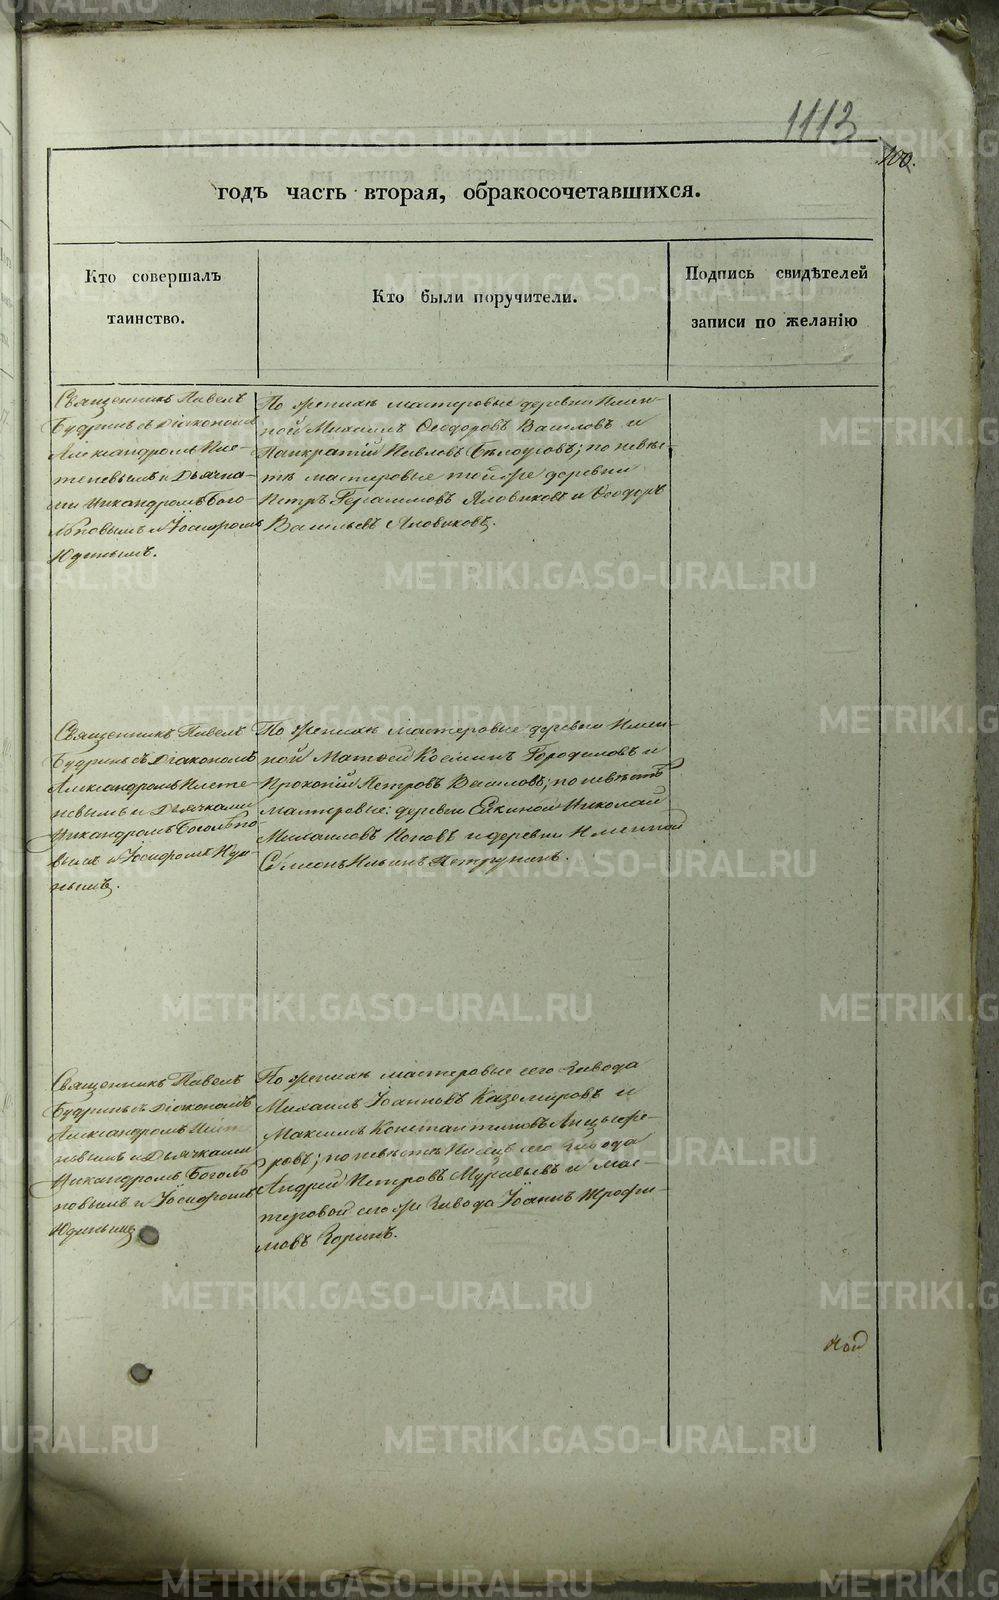 1113
100.
годъ часть вторая, обракосочетавшихся.
Кто совершалъ
таинство.
Кто были поручители.
Подпись свидѣтелей
записи по желанію
Священникъ Павелъ
Будринъ съ Діакономъ
Александромъ
и Дьячка-
ми Никандромъ Бого-
любовымъ и Іосифомъ
Юдинымъ.
По женихѣ мастеровые деревни Имен-
ной Михаилъ Ѳеодоровъ Вагиловъ и
Панкратій Бѣлоусовъ; по невѣс-
тѣ мастеровые той же деревни
Петръ Герасимовъ Яловиковъ и Ѳеодоръ
Васильевъ Яловиковъ.
Священникъ Павелъ
Будринъ съ Діакономъ
Александромъ
и Дьячками
Никандромъ Боголюбо-
вымъ и Іосифомъ Юди-
нымъ.
По женихѣ мастеровые деревни Имен-
ной Матѳей Козминъ и
Прокопій Петровъ Вагиловъ; по невѣстѣ
мастеровые: деревни Николай
Михаиловъ Поповъ и деревни Именной
Симеонъ Ильинъ Петрунинъ.
Священникъ Павелъ
Будринъ съ Діакономъ
Александромъ
и Дьячками
Никандромъ Боголю-
бовымъ и Іосифомъ
Юдинымъ
По женихѣ мастеровые сего завода
Михаилъ Іоанновъ Каземировъ и
Максимъ Константиновъ Анцыфе-
ровъ; по невѣстѣ сего завода
Андрей Петровъ Муравьевъ и мас-
теровой сего же завода Іоаннъ Трофи-
мовъ Зоринъ.
METRIKI.GASO-URAL.RU